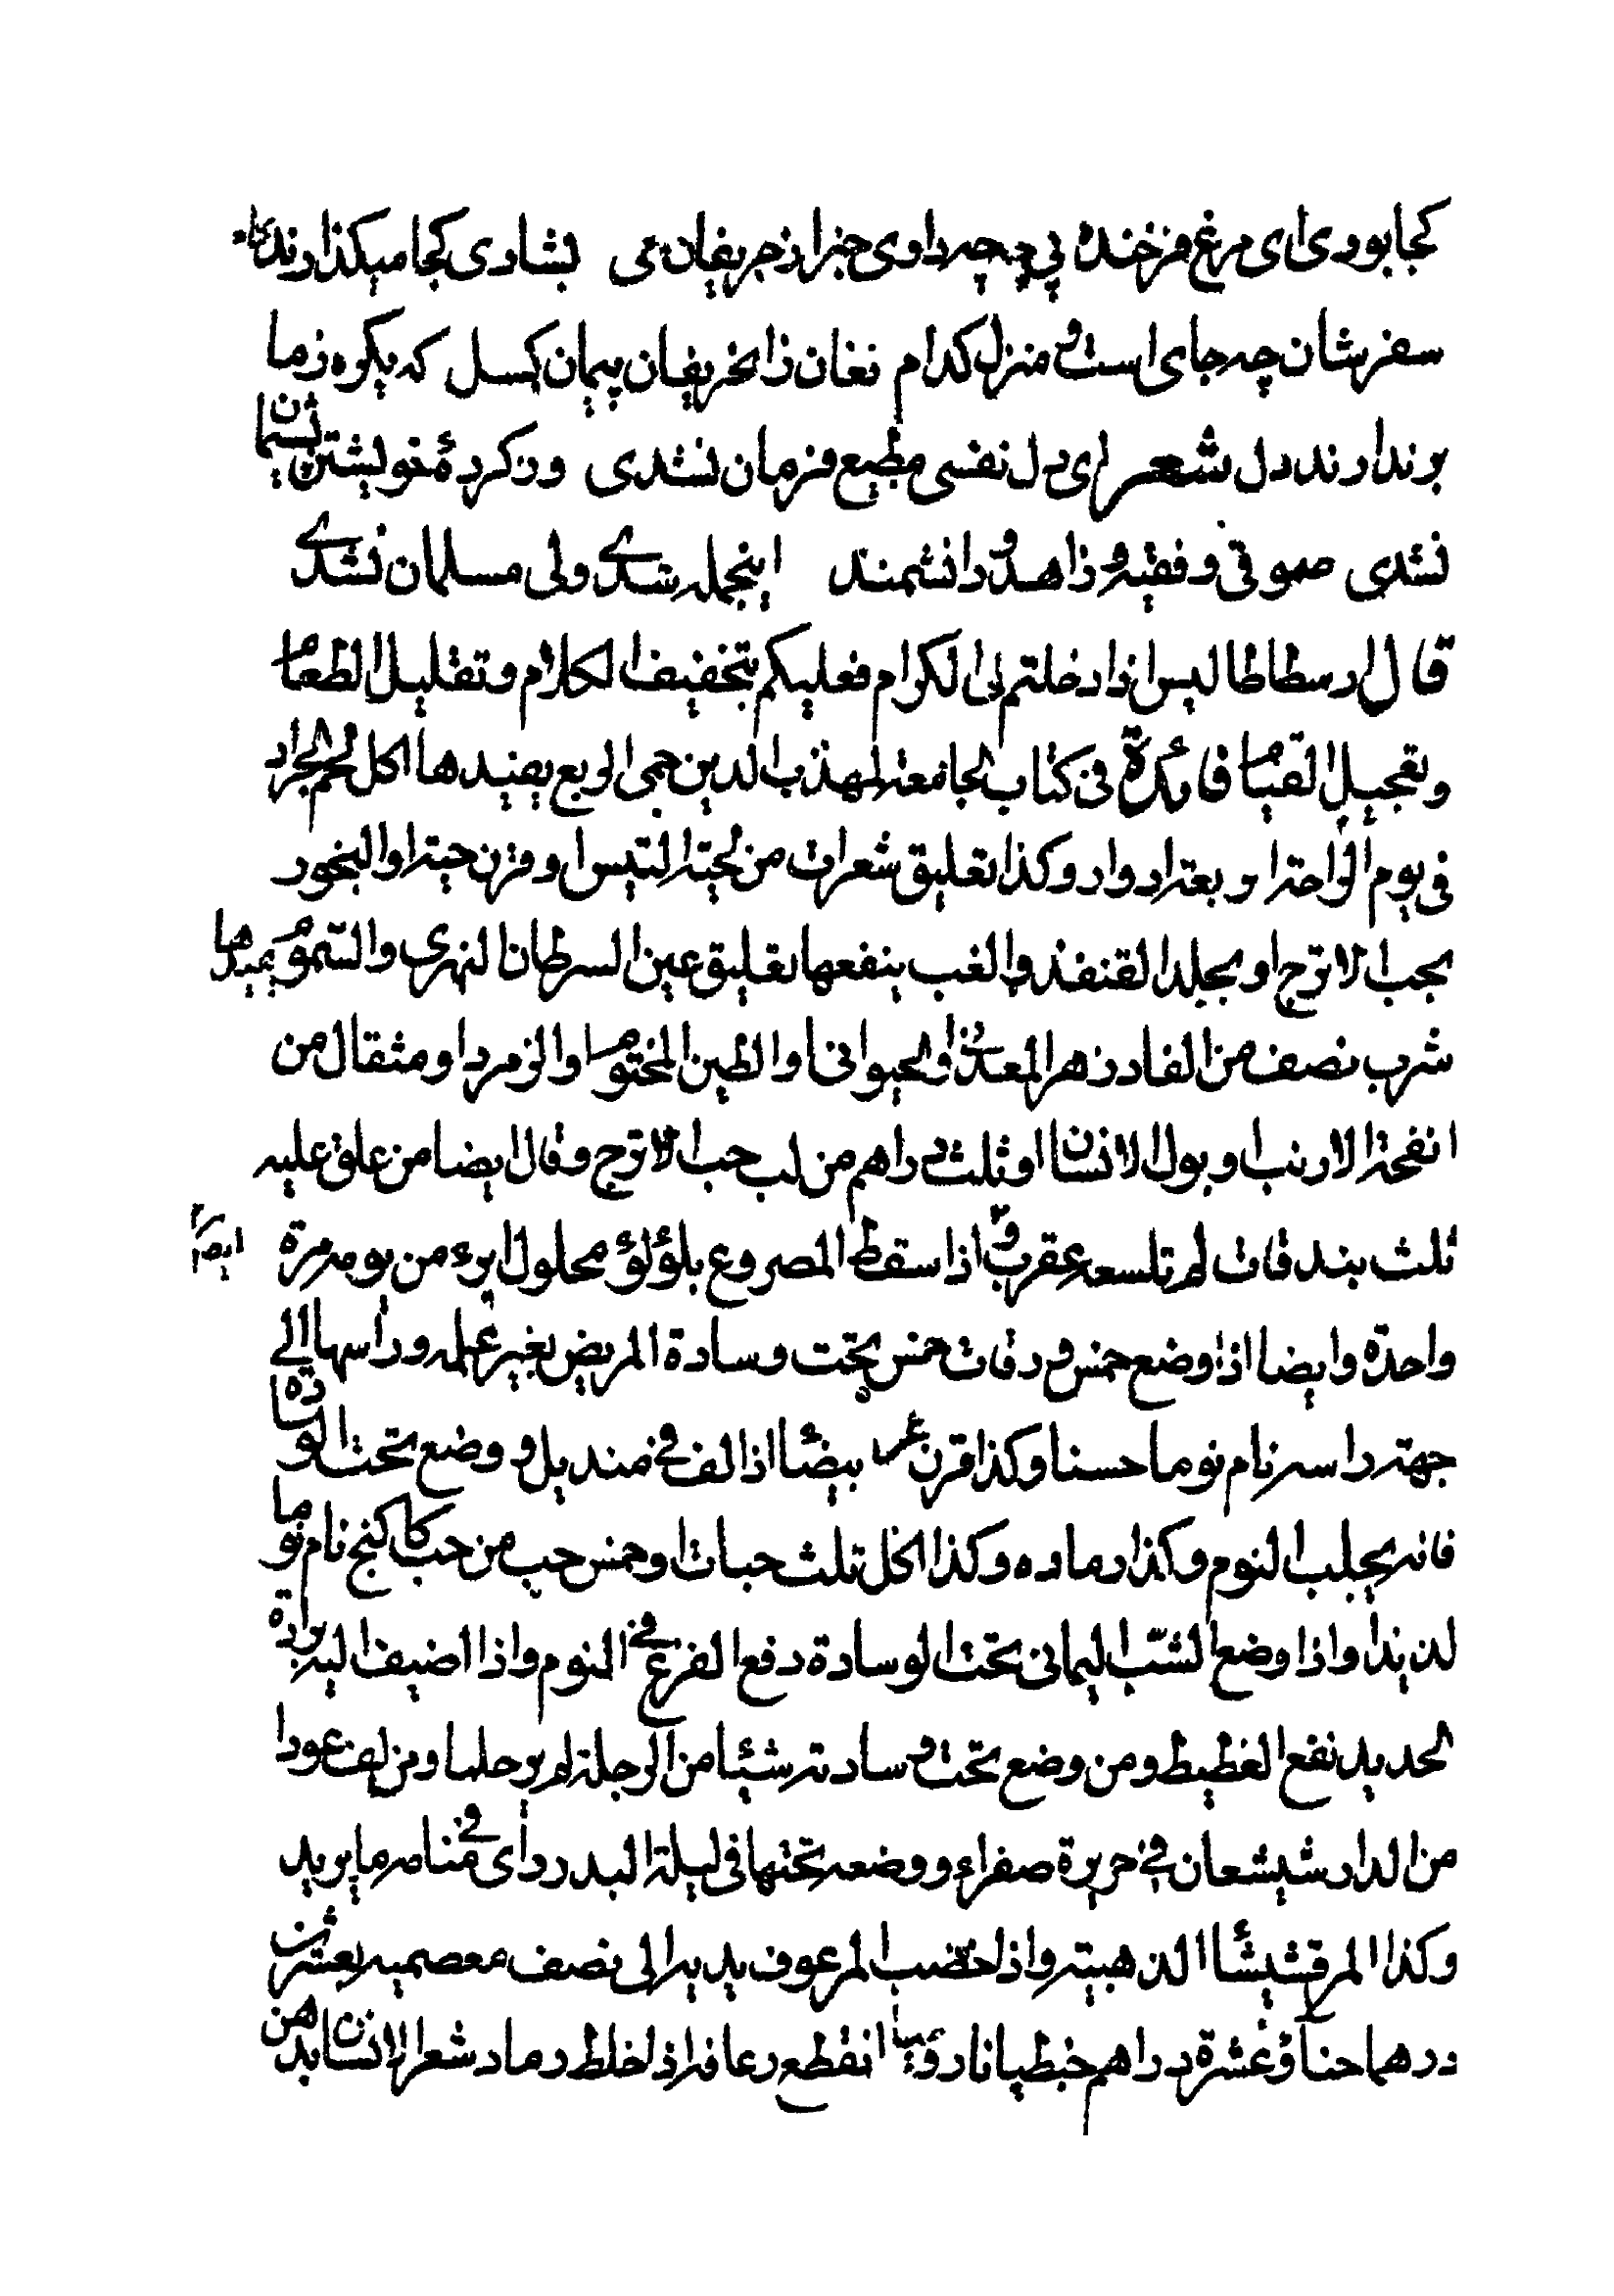 کجا بودی ای مرغ فرخنده پی چه داری خبر از حریفان می بشادی کجا میگذارند کام
سفرشان چه جای است و منزل کدام فغان زان حریفان پیمان گسل که یکره ز ما
برندارند دل شعر ای دل نفسی مطیع فرمان نشدی وز کرده خویشتن پشیمان
نشدی صوفی و فقیه و زاهد و دانشمند اینجمله شدی ولی مسلمان نشدی
قال ارسطاطاليس اذا دخلتم الى الكرام فعليكم بتخفيف الكلام وتقليل الطعام
وتعجيل القيام فائدة فى كتاب الجامعة لمهذب الدين حمى الربع يفيدها اكل لحم الجراد
فى يوم الراحة اربعة ادوار وكذا تعليق شعرات من لحية التيس او قرن حية او البخور
بحب الاترج او بجلد القنفذ والغب ينفعها تعليق عين السرطان النهرى والسموم يفيدها
شرب نصف من الفادزهر المعدنى او الحيوانى او الطين المختوم او الزمرد او مثقال من
انفحة الارنب او بول الانسان او ثلث دراهم من لب حب الاترج وقال ايضا من علق عليه
ثلث بندقات لم تلسعه عقرب و اذا سقط المصروع بلؤلؤ محلول ابرء من يومه مرة ايضا
واحدة وايضا اذا وضع خمس ورقات خس تحت وسادة المريض بغير علمه وراسها الى
جهة راسه نام نوما حسنا وكذا قرن عنز بيضا اذا لف فى منديل و وضع تحت الوسادة
فانه يجلب النوم وكذا رماده وكذا اكل ثلث حبات او خمس حب من حب كاكنج نام نوما
لذيذا واذا وضع الشب اليمانى تحت الوسادة دفع الفزع فى النوم واذا اضيف اليه برادة
الحديد نفع الغطيط ومن وضع تحت وسادته شيئا من الرجلة لم ير حلما ومن لف عودا
من الدارشيشعان فى حريرة صفراء ووضعه تحتها فى ليلة البدر راى فى منامه ما يريد
وكذا المرقشيشا الذهبية واذا خضب المرعوف يديه الى نصف معصميه بعشرين
درهما حنا و عشرة دراهم خبطيانا انقطع رعافه اذا خلط رماد شعر الانسان بدهن